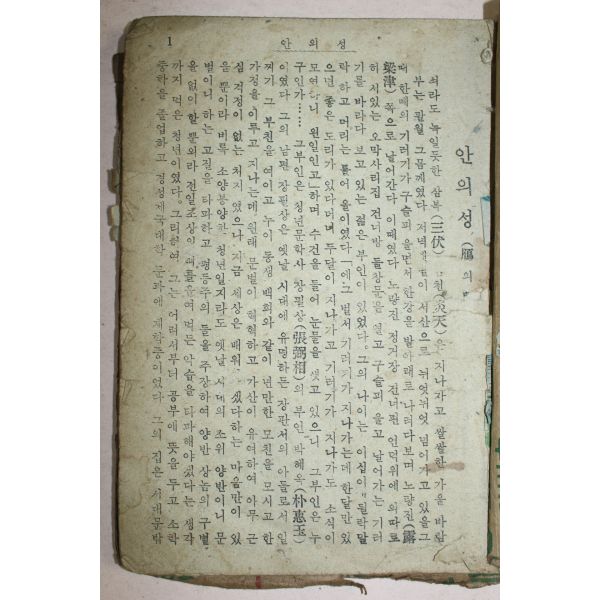 안의성
1
안의성 (鴈의
쇠라도 녹일듯한 삼복(三伏) 천(炎天)은 지나가고 쌀쌀한 가을 바람
부는 팔월 그믐께였다. 저녁 서산으로 뉘엿뉘엿 넘어가고 있을그
때 한떼의 기러기가 구슬피 울면서 한강을 발아래로 나려다보며 노량진(露
梁津) 쪽으로 날어간다 이때였다 노량진 정거장 건너편 언덕위에 외따로
히 서있는 오막사리집 건너방 들창문을 열고 구슬피 울고 날어가는 기러
기를 바라다 보고 있는 젊은 부인이 있었다. 그의 나이는 이십이 될락말
락하고 머리는 틀어 올이였다 「에그 벌서 기러기가 지나가는데 한달만 있
으면 좋은 도리가 있다더며 두달이 지나가고 기러기가 지나가도 소식이
모연하니 원일인고」하며 수건을 들어 눈물을 씻고 있으니 그부인은 누
구인가…… 그부인은 청년문학사 장필상(張弼相)의 부인 박혜옥(朴惠玉)
이였다 그의 남편 장필상은 옛날 시대에 유명하든 장판서의 아들로서 일
찌기 그 부친을 여이고 누이 동생 백희와 같이 년만한 모친을 모시고 한
가정을 이루고 지나는데 원래 문벌이 혁혁하고 가산이 유여하여 아무 근
심 걱정이 없는 처지 였으나 지금 세상은 배워 겠다하는 마음만이 있
을 뿐이라 비록 소양봉양찬 청년일지라도 옛날 시대의 조위 양반이니 문
벌이니 하는 고질을 타파하고 평등주의 들을 주장하여 양반 상놈의 구별
을 없이 할뿐외라 전일 조상의 여 여먹든 악습을 타파해야겠다는 생각
까지 먹은 청년이였다. 그리하여 그는 어려서부터 공부에 뜻을 두고 소학
중학을 졸업하고 경성제국대학 문과에 재학중이였다 그의 집은 서대문밖